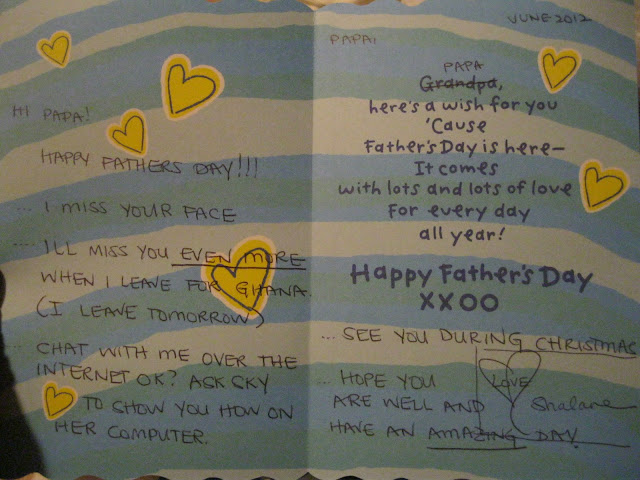 HI PAPA!
HAPPY FATHERS DAY!!!
... I MISS YOUR FACE
.... ILL MISS YOU EVEN MORE
WHEN I LEAVE FOR GHANA.
(I LEAVE TOMORROW)
... CHAT WITH ME OVER THE
INTERNET OK? ASK SKY
TO SHOW YOU HOW ON
HER COMPUTER.
JUNE 2012
PAPA:
PAPA
Grandpa,
here's a wish for you
'Cause
Father's Day is here—
It comes
with lots and lots of love
For every day
all year!
Happy Father's Day
XXOO
... SEE YOU DURING CHRISTMAS
... HOPE YOU
ARE WELL AND
HAVE AN AMAZING DAY.
LOVE
Shalane